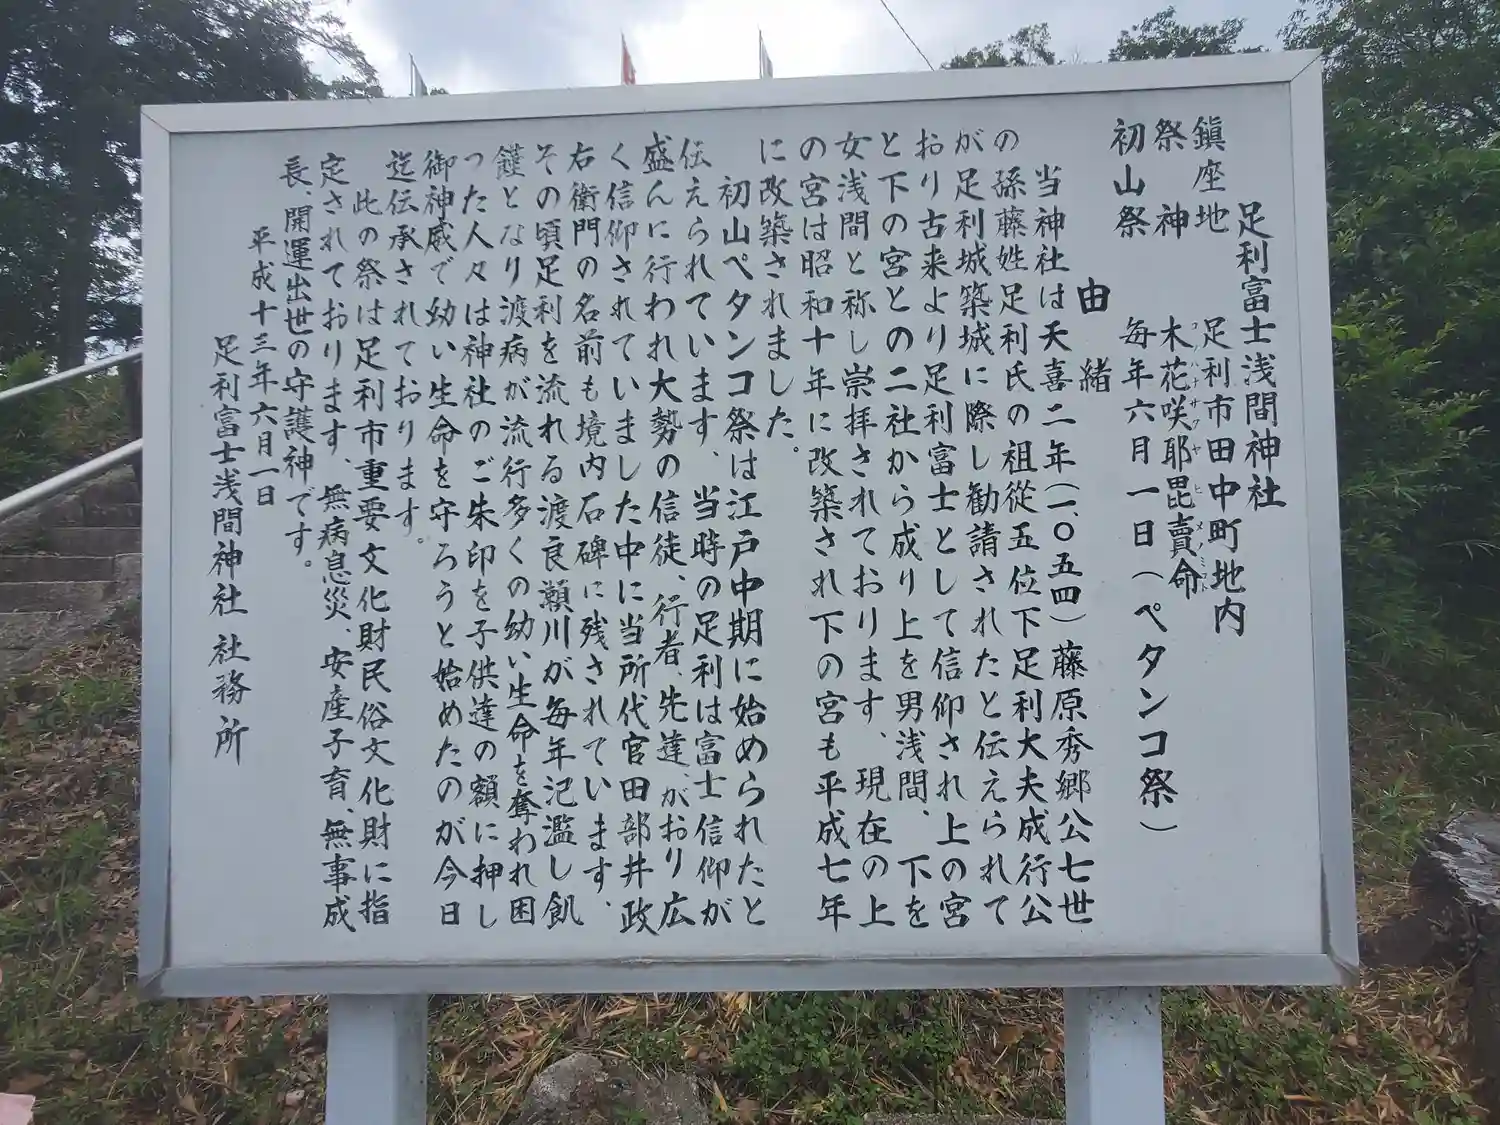 足利富士浅間神社
鎮座地　足利市田中町地内
祭神　木花咲耶毘賣命
コノハナサクヤヒメノミコト
初山祭　毎年六月一日（ペタンコ祭）
由緒
当神社は天喜二年（一、〇五四）藤原秀郷公七世
の孫藤姓足利氏の祖従五位下足利大夫成行公
が足利城築城に際し勧請されたと伝えられて
おり古来より足利富士として信仰され上の宮
と下の宮との二社から成り上を男浅間、下を
女浅間と称し崇拝されております、現在の上
の宮は昭和十年に改築され下の宮も平成七年
に改築されました。
初山ペタンコ祭は江戸中期に始められたと
伝えられています、当時の足利は富士信仰が
盛んに行われ大勢の信徒、行者、先達、がおり広
く信仰されていました中に当所代官田部井政
右衛門の名前も境内石碑に残されています、
その頃足利を流れる渡良瀬川が毎年氾濫し飢
饉となり渡病が流行多くの幼い生命を奪われ困
った人々は神社のご朱印を子供達の額に押し
御神威で幼い生命を守ろうと始めたのが今日
迄伝承されております。
此の祭は足利市重要文化財民俗文化財に指
定されております、無病息災、安産子育、無事成
長、開運出世の守護神です。
平成十三年六月一日
足利富士浅間神社　社務所